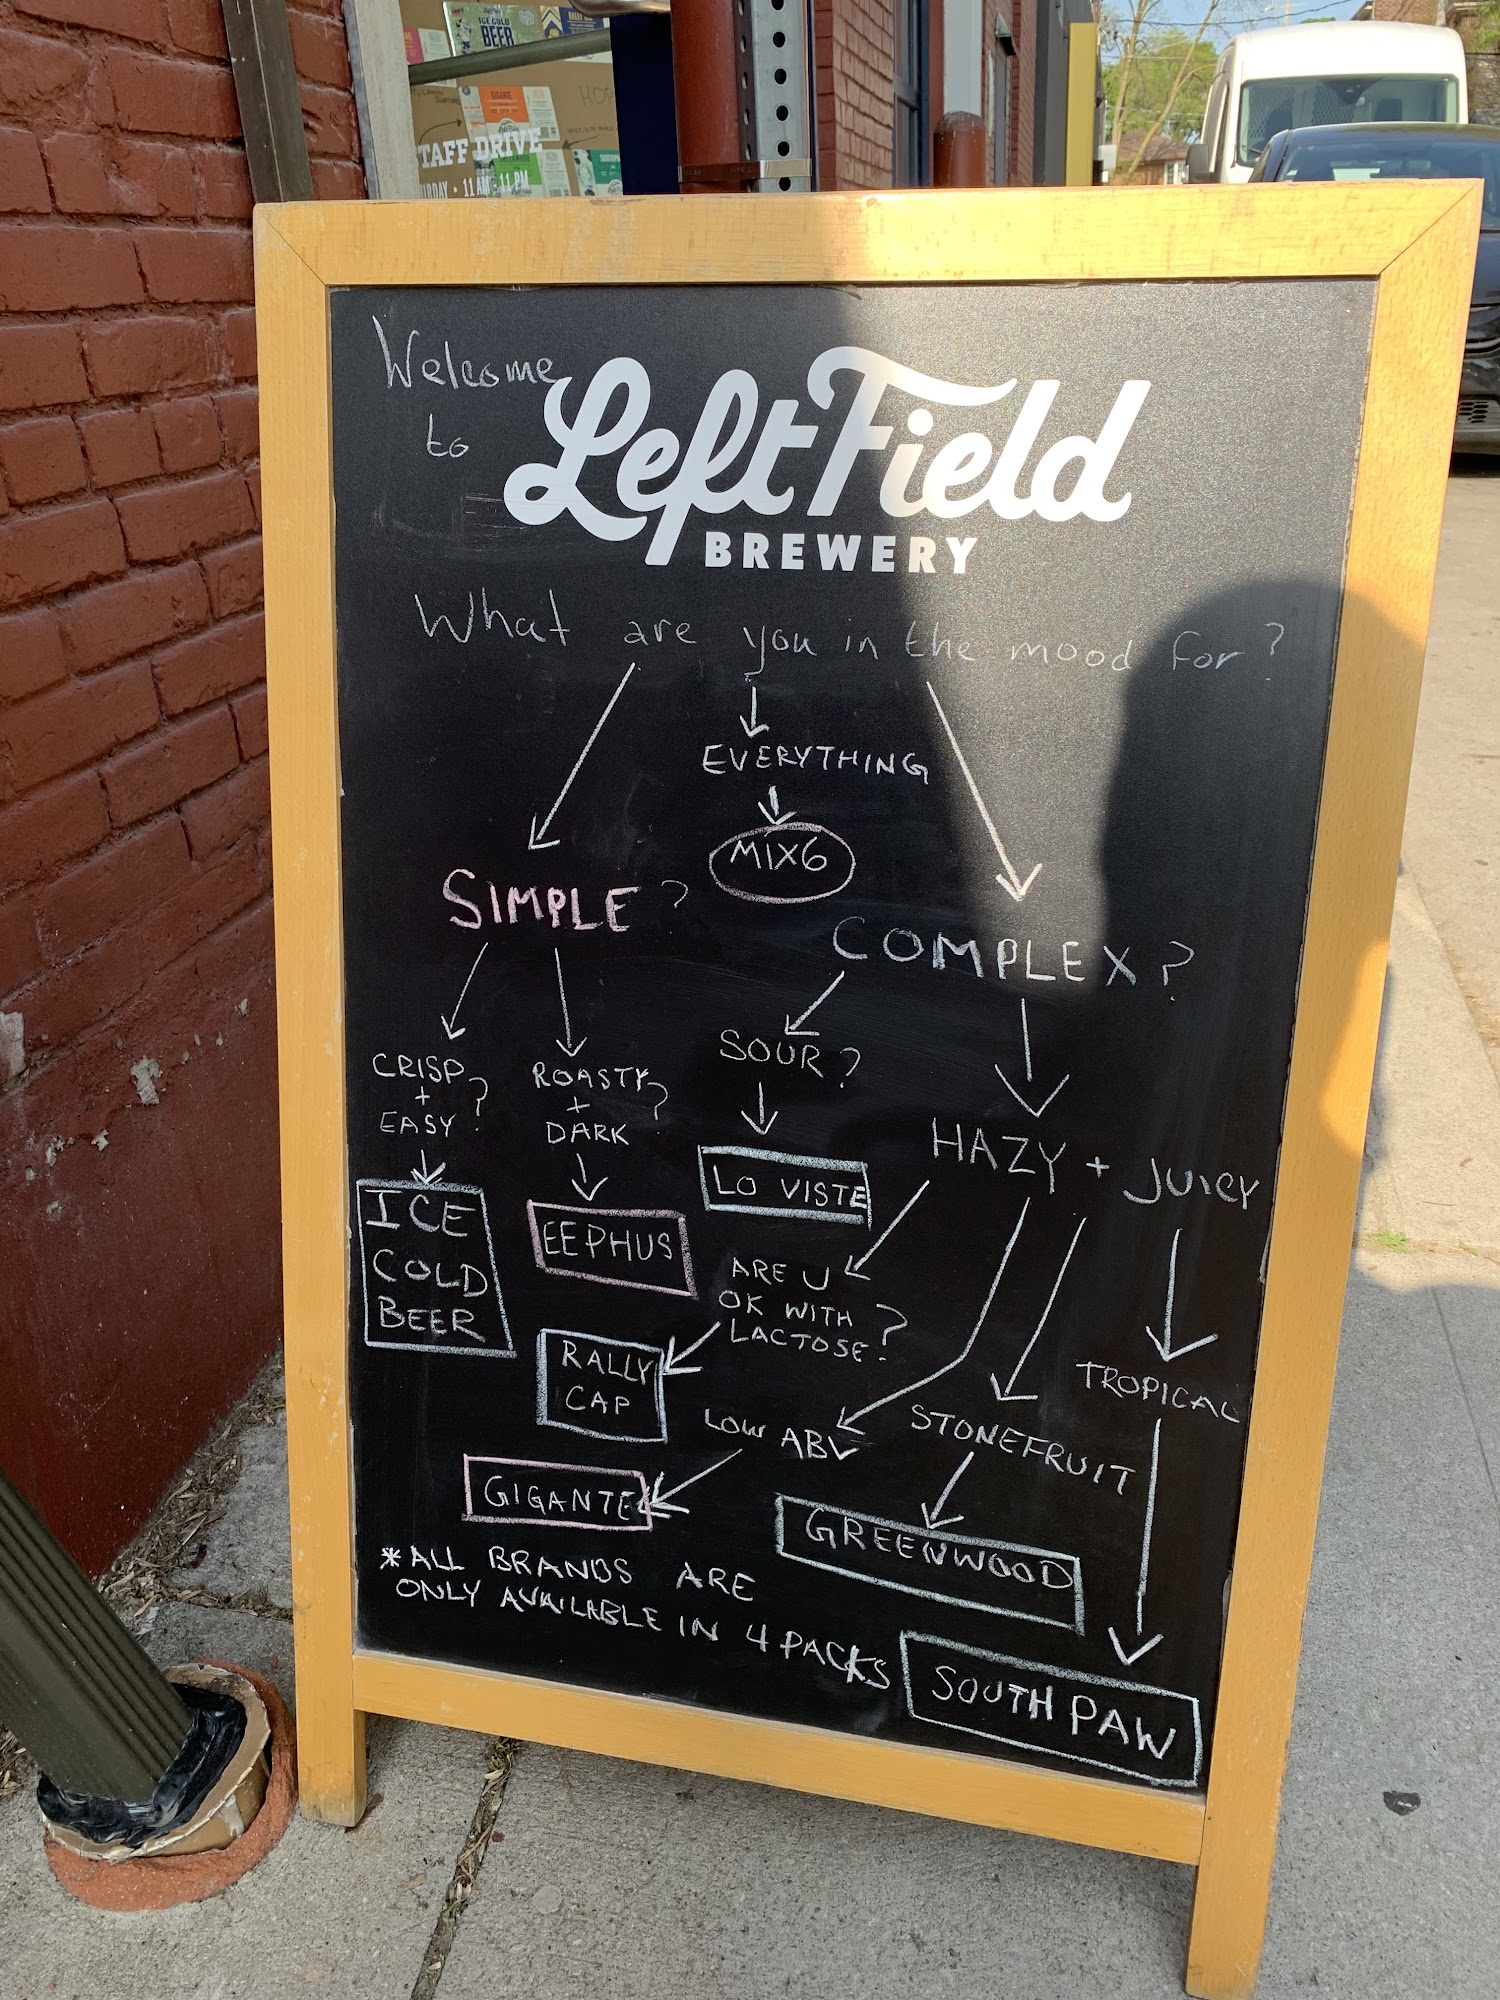 ICE COLD
BEER
GIGANTE
STAFF DRIVE
11 AM - 11 PM
Welcome
to
Left Field
BREWERY
What are you in the mood for?
EVERYTHING
MIX6
SIMPLE?
COMPLEX?
CRISP
+
EASY?
ROASTY
+
DARK?
SOUR?
HAZY + JUICY
ICE
COLD
BEER
EEPHUS
LO VISTE
ARE U
OK WITH
LACTOSE?
RALLY
CAP
LOW ABV
STONEFRUIT
TROPICAL
GIGANTE
GREENWOOD
SOUTHPAW
*ALL BRANDS ARE
ONLY AVAILABLE IN 4 PACKS